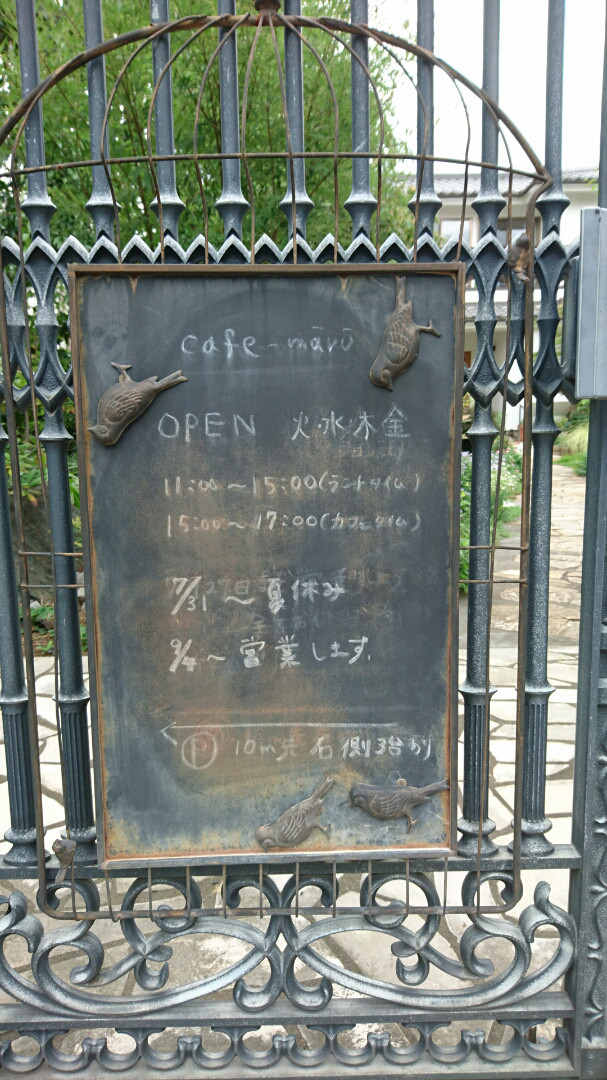 cafe-mārū
OPEN 火・水・木・金
11:00〜15:00(ランチタイム)
15:00〜17:00(カフェタイム)
7/31〜夏休み
9/4〜営業します。
Ⓟ 10m先右側3台あり